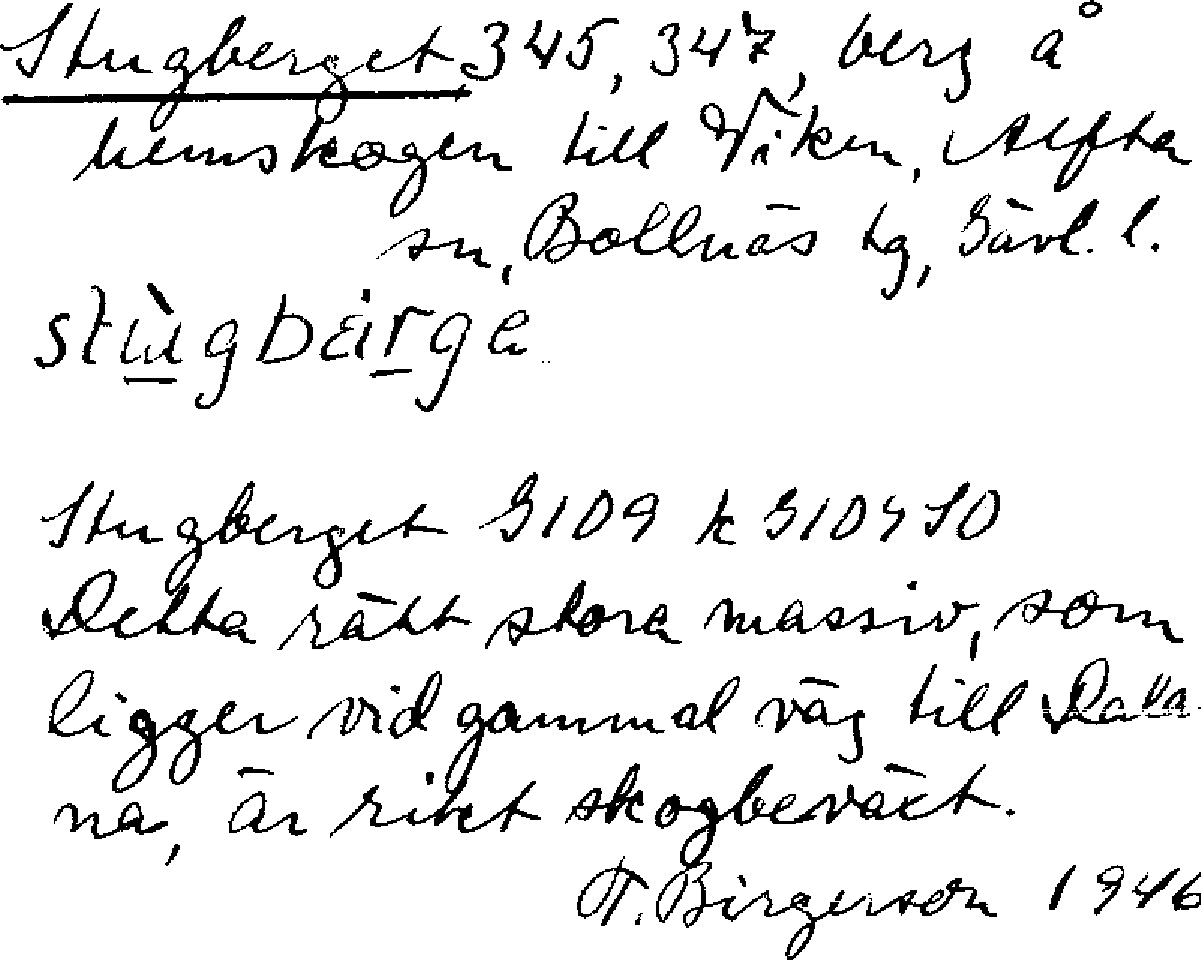 Stugberget 345, 347, berg å
hemskogen till Viken, Alfta
sn, Bollnäs tg, Gävl. l.
stùgbärge
Stugberget G109 k G104 SO
Detta rätt stora massiv, som
ligger vid gammal väg till Dala
na, är rikt skogbeväxt.
T. Birgerson 1946